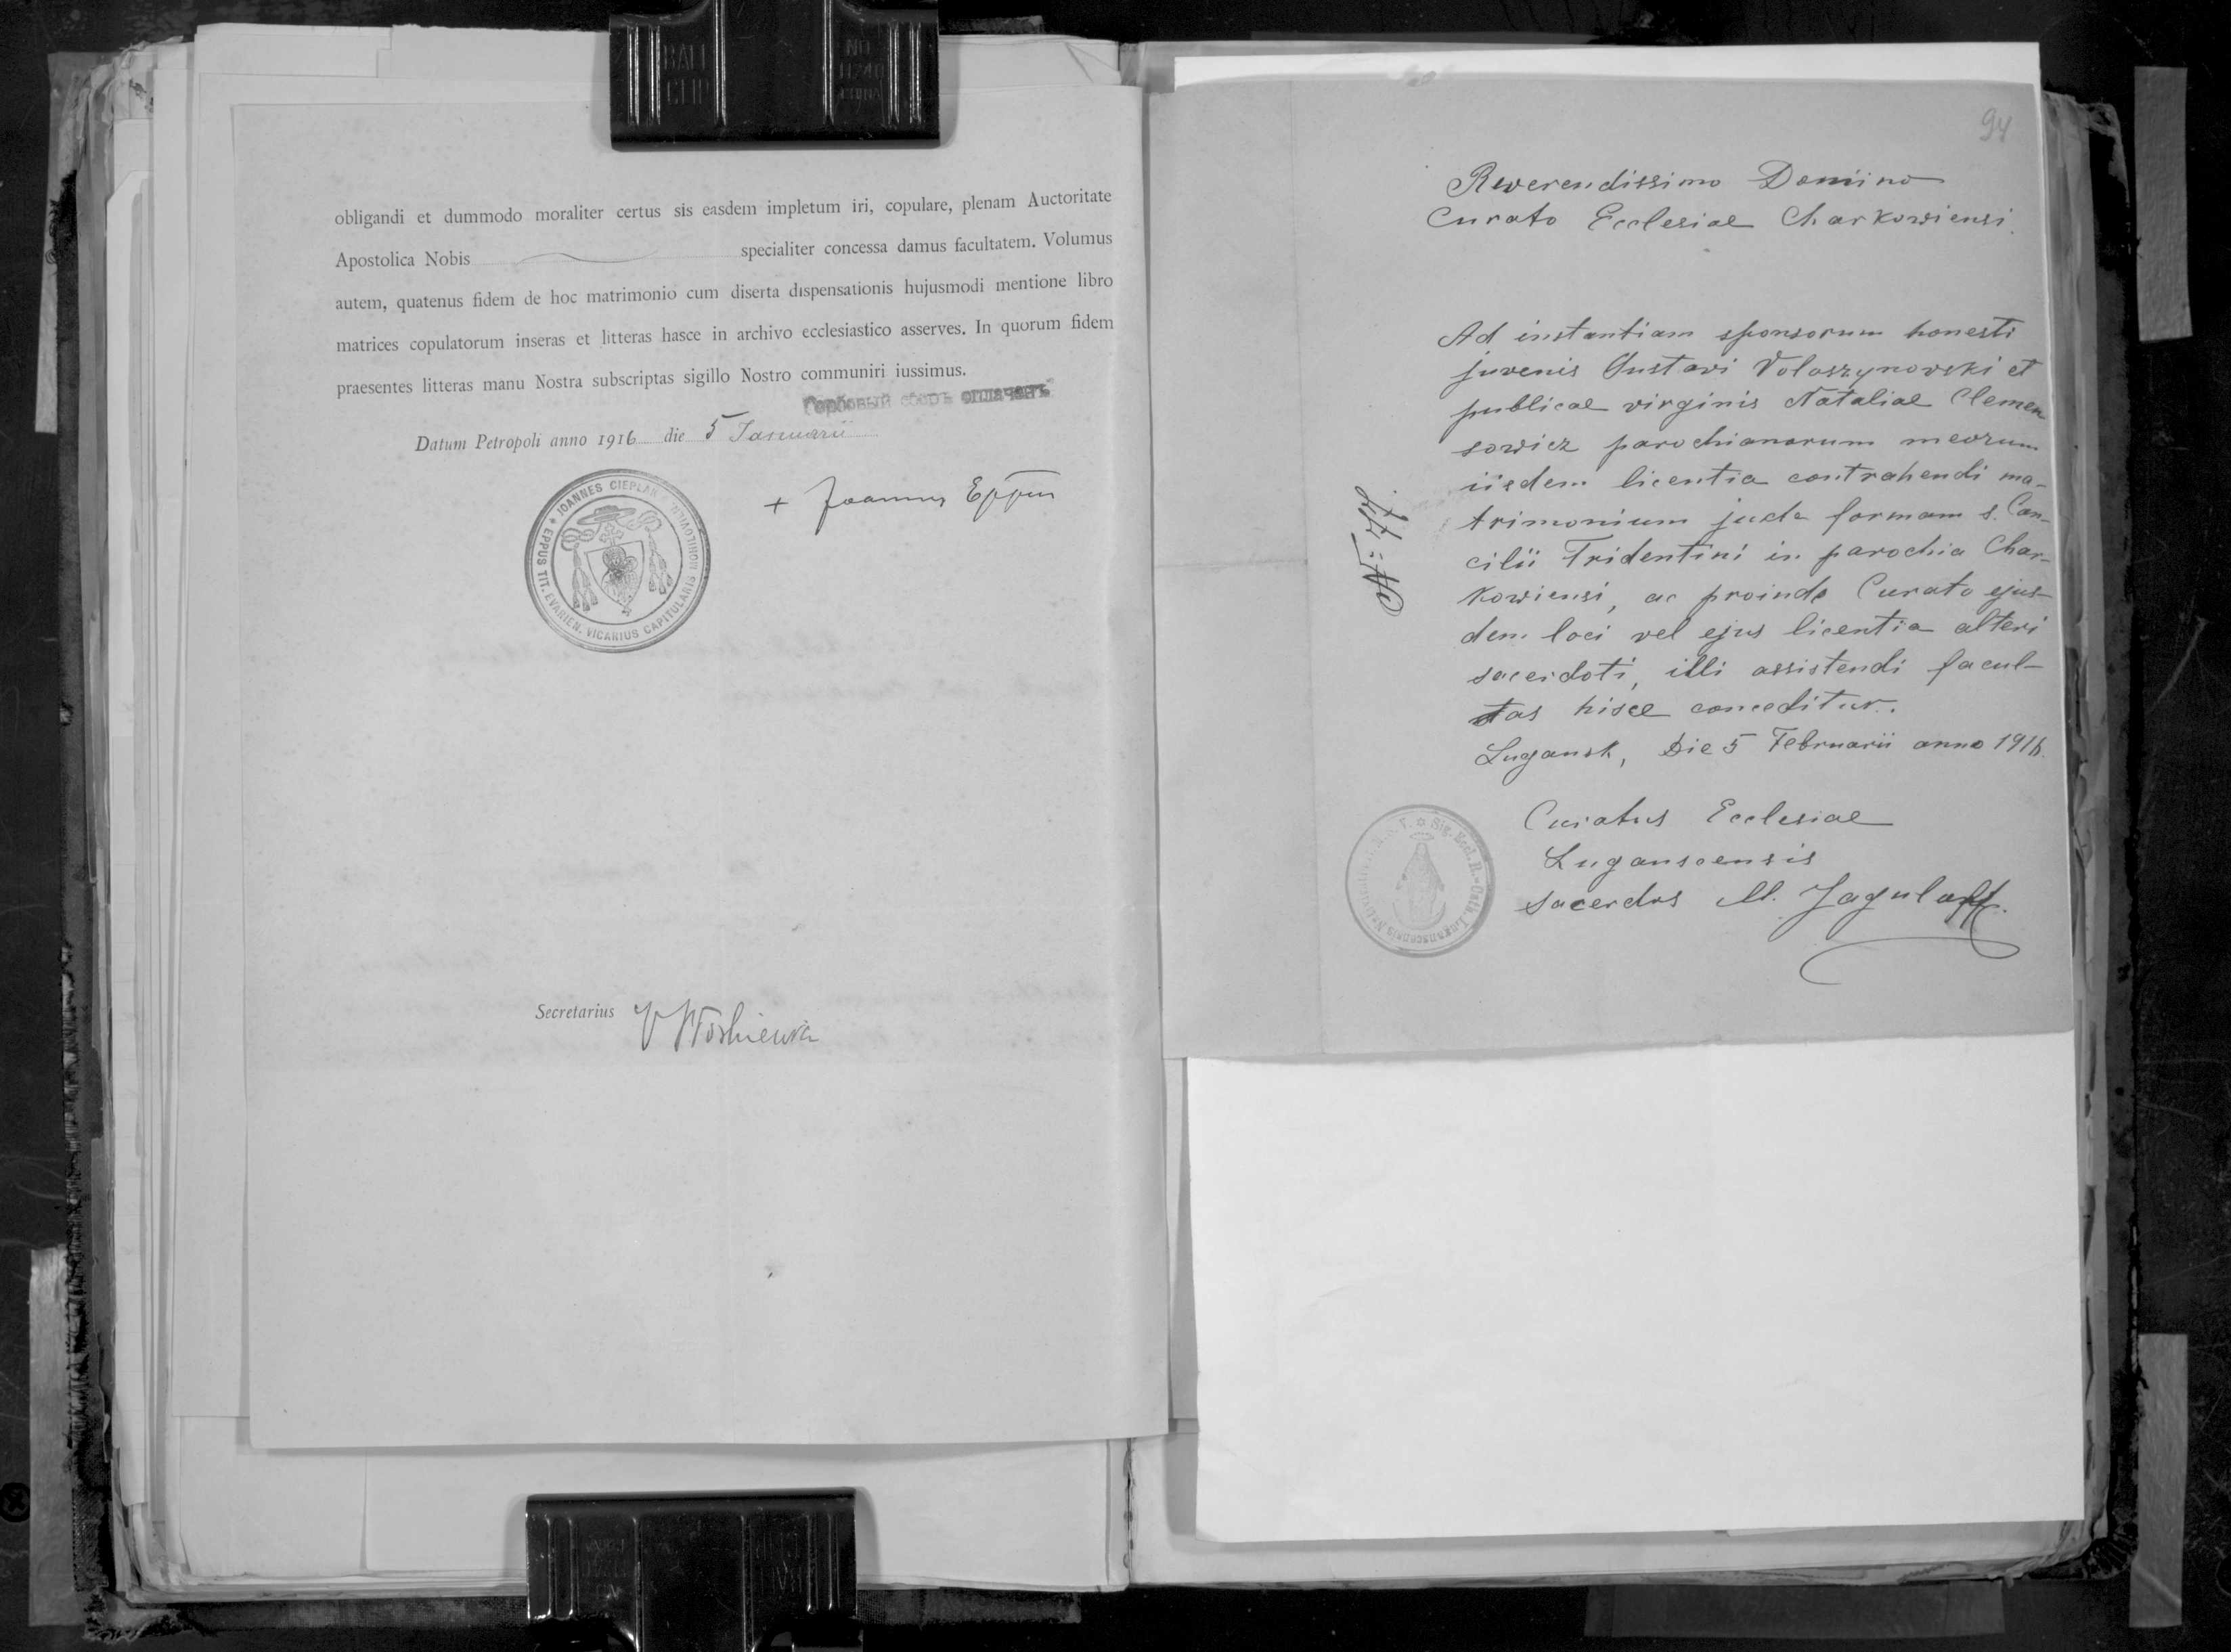 obligandi et dummodo moraliter certus sis easdem impletum iri, copulare, plenam Auctoritate
Apostolica Nobis specialiter concessa damus facultatem. Volumus
autem, quatenus fidem de hoc matrimonio cum diserta dispensationis hujusmodi mentione libro
matrices copulatorum inseras et litteras hasce in archivo ecclesiastico asserves. In quorum fidem
praesentes litteras manu Nostra subscriptas sigillo Nostro communiri iussimus.
Гербовый сборъ оплаченъ
Datum Petropoli anno 1916 die 5 Januarii
JOANNES CIEPLAK EPPUS TIT. EVARIEN. VICARIUS CAPITULARIS MOHILOVIEN.
+ Joannes Eppus
Secretarius
94
Reverendissimo Domino
Curato Ecclesiae Charkowiensi.
Ad instantiam sponsorum honesti
juvenis Gustavi Voloszynowski et
publicae virginis Nataliae Clemen
sowicz parochianorum meorum
iisdem licentia contrahendi ma-
trimonium juxta formam s. Con-
cilii Tridentini in parochia Char-
kowiensi, ac proinde Curato ejus-
dem loci vel ejus licentia alteri
sacerdoti, illi assistendi facul-
tas hisce conceditur.
Lugansk, Die 5 Februarii anno 1916.
N: 77.
Curatus Ecclesiae
Luganscensis
sacerdos M. Jaguloff.
Sig. Eccl. R.-Cath. Luganscensis Nativitatis
BALL CLIP
NO
CHINA